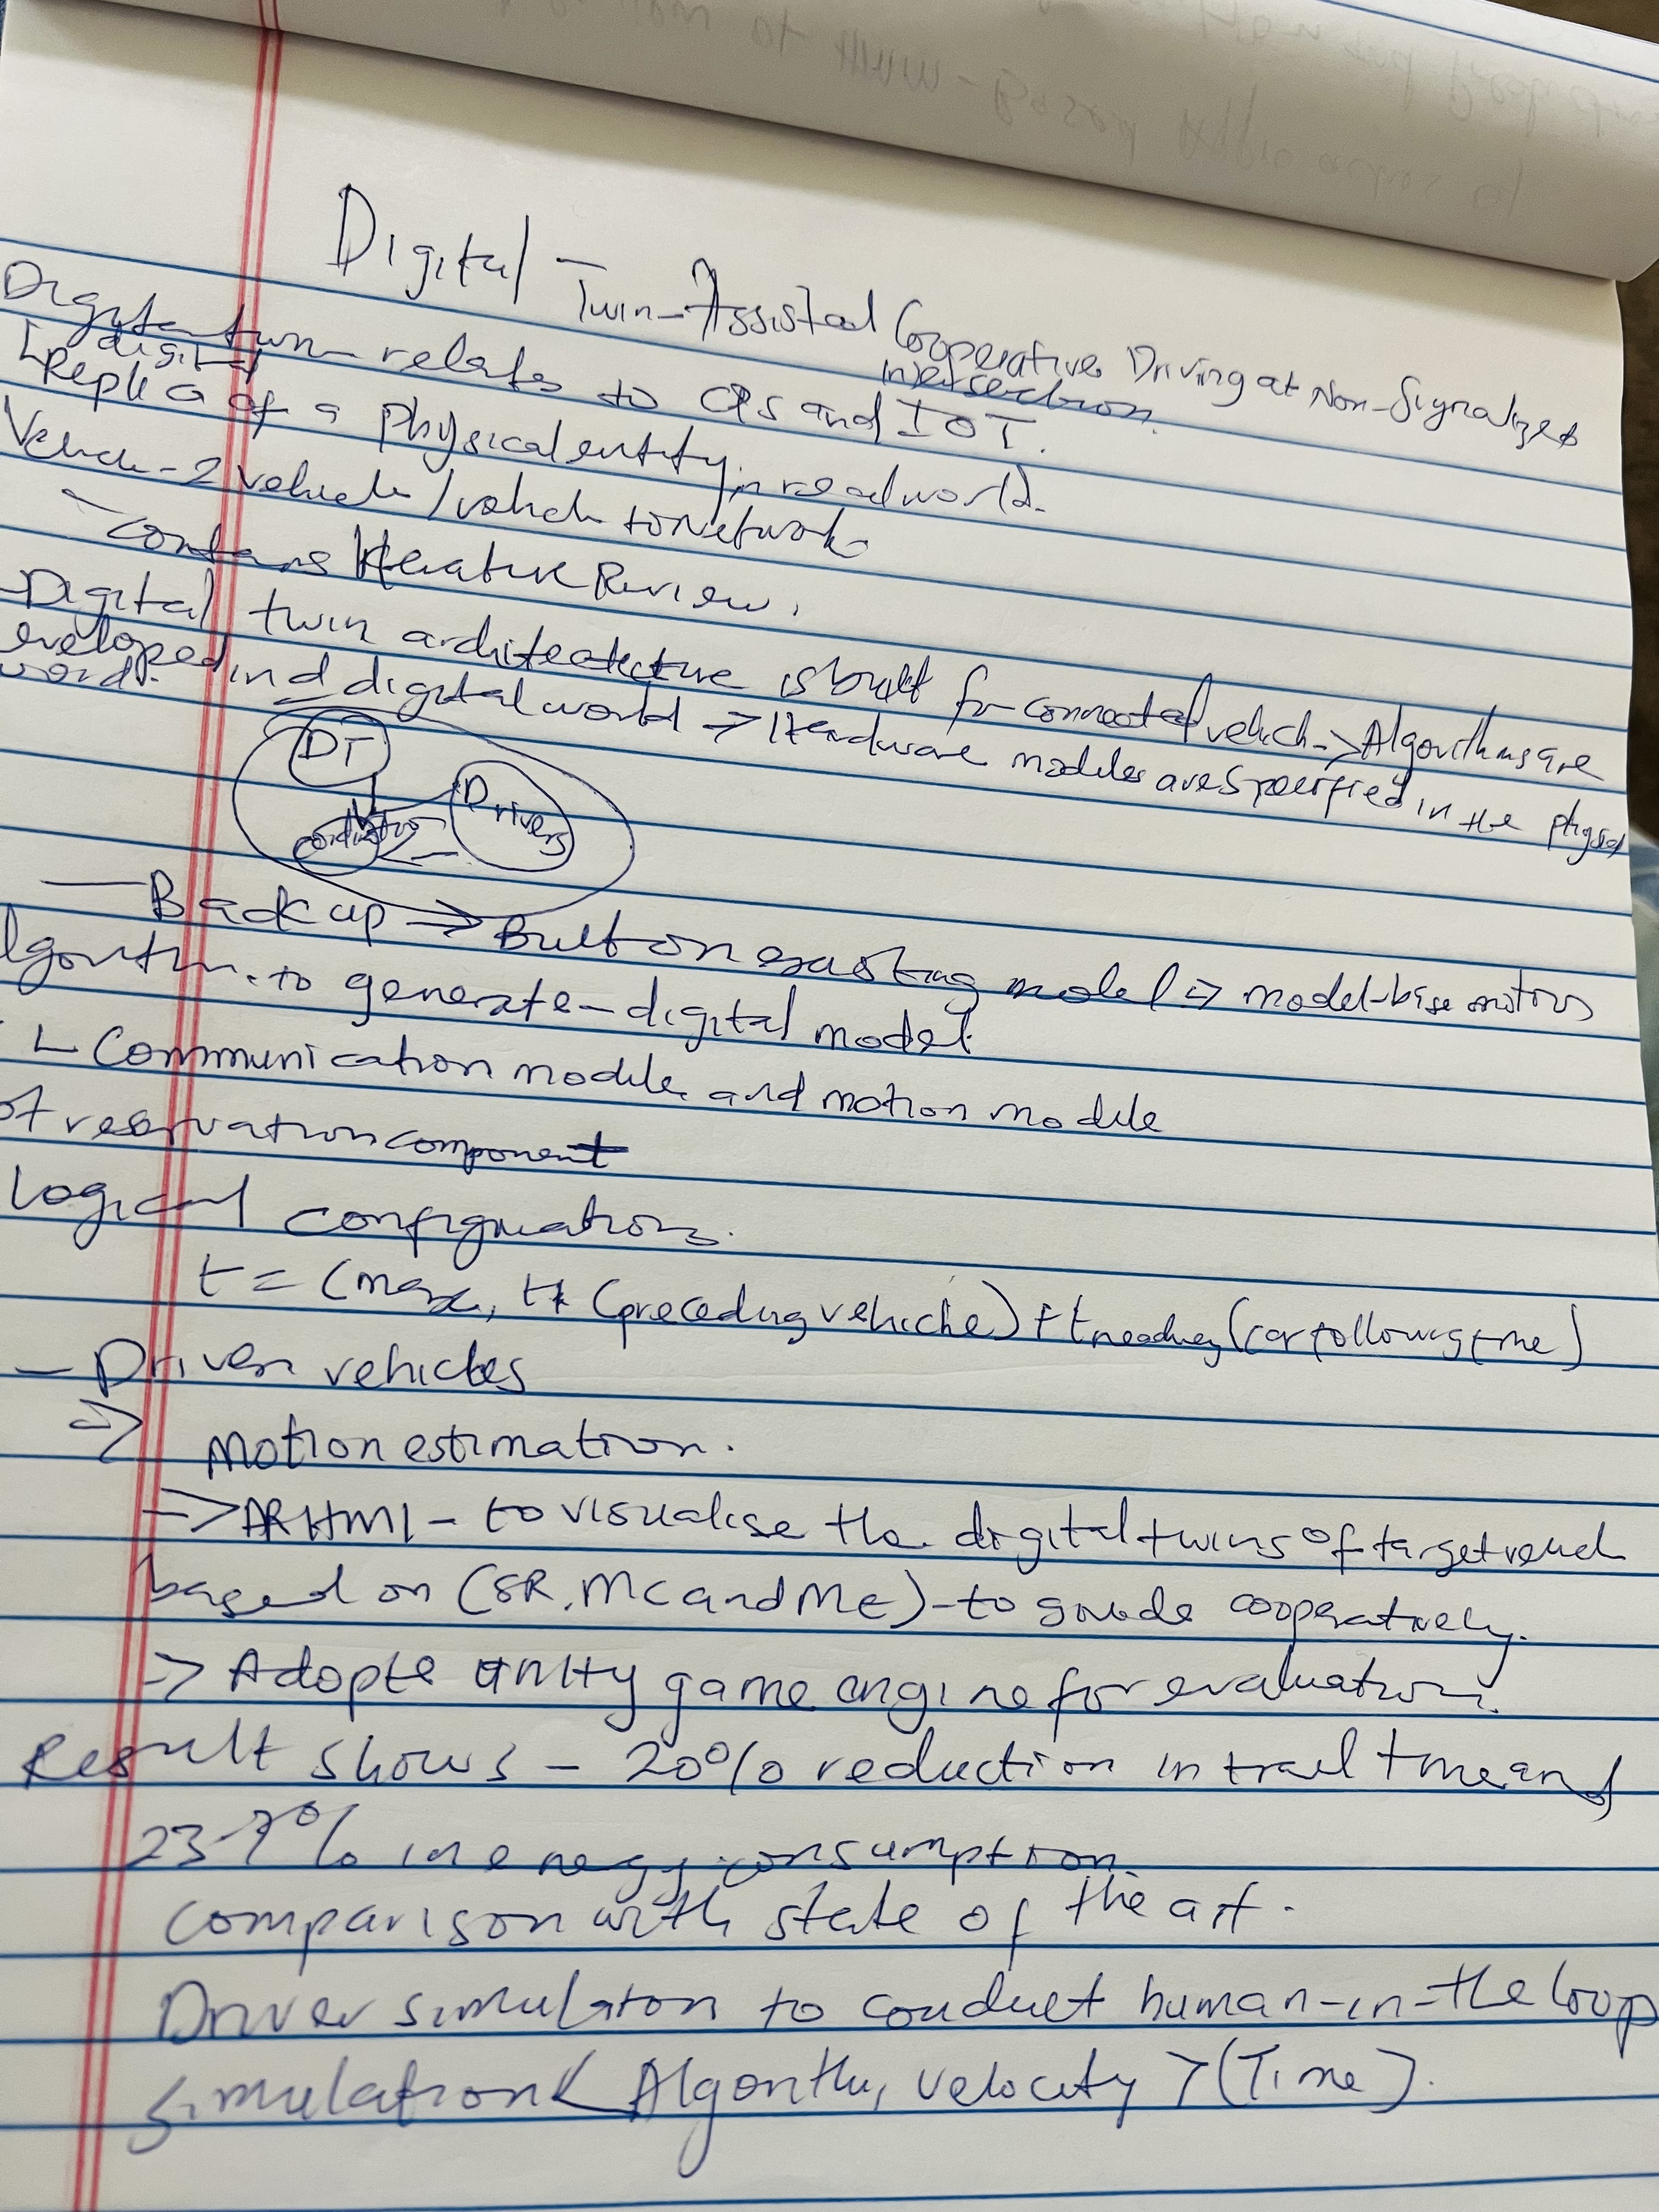 Digital - Twin-Assisted Cooperative Driving at Non-Signalized
intersection.
Digital twin relates to CPS and IOT.
digital
[Replica of a physical entity in real world.
Vehicle-2 vehicle / vehicle to Network
- contains literature Review.
- Digital twin architecture is built for connected vehicle -> Algorithms are
eveloped in d digital world -> Hardware modules are specified in the physical
world.
DT
Drivers
- Back up => Built on existing model => model-base motion
lgorithm. to generate - digital model
Communication module and motion module
of reservation component
Logical configuration.
t = (max, t (preceding vehicle) + t (car following time)
- Driven vehicles
=> Motion estimation.
=> AR HMI - to visualise the digital twins of target vehicle
based on (SR, MC and ME) - to guide cooperatively.
=> Adopte unity game engine for evaluation.
Result shows - 20% reduction in travel time and
23.7% in energy consumption.
comparison with state of the art.
Driver simulation to conduct human-in-the loop
simulation < Algorithm, velocity > (Time).